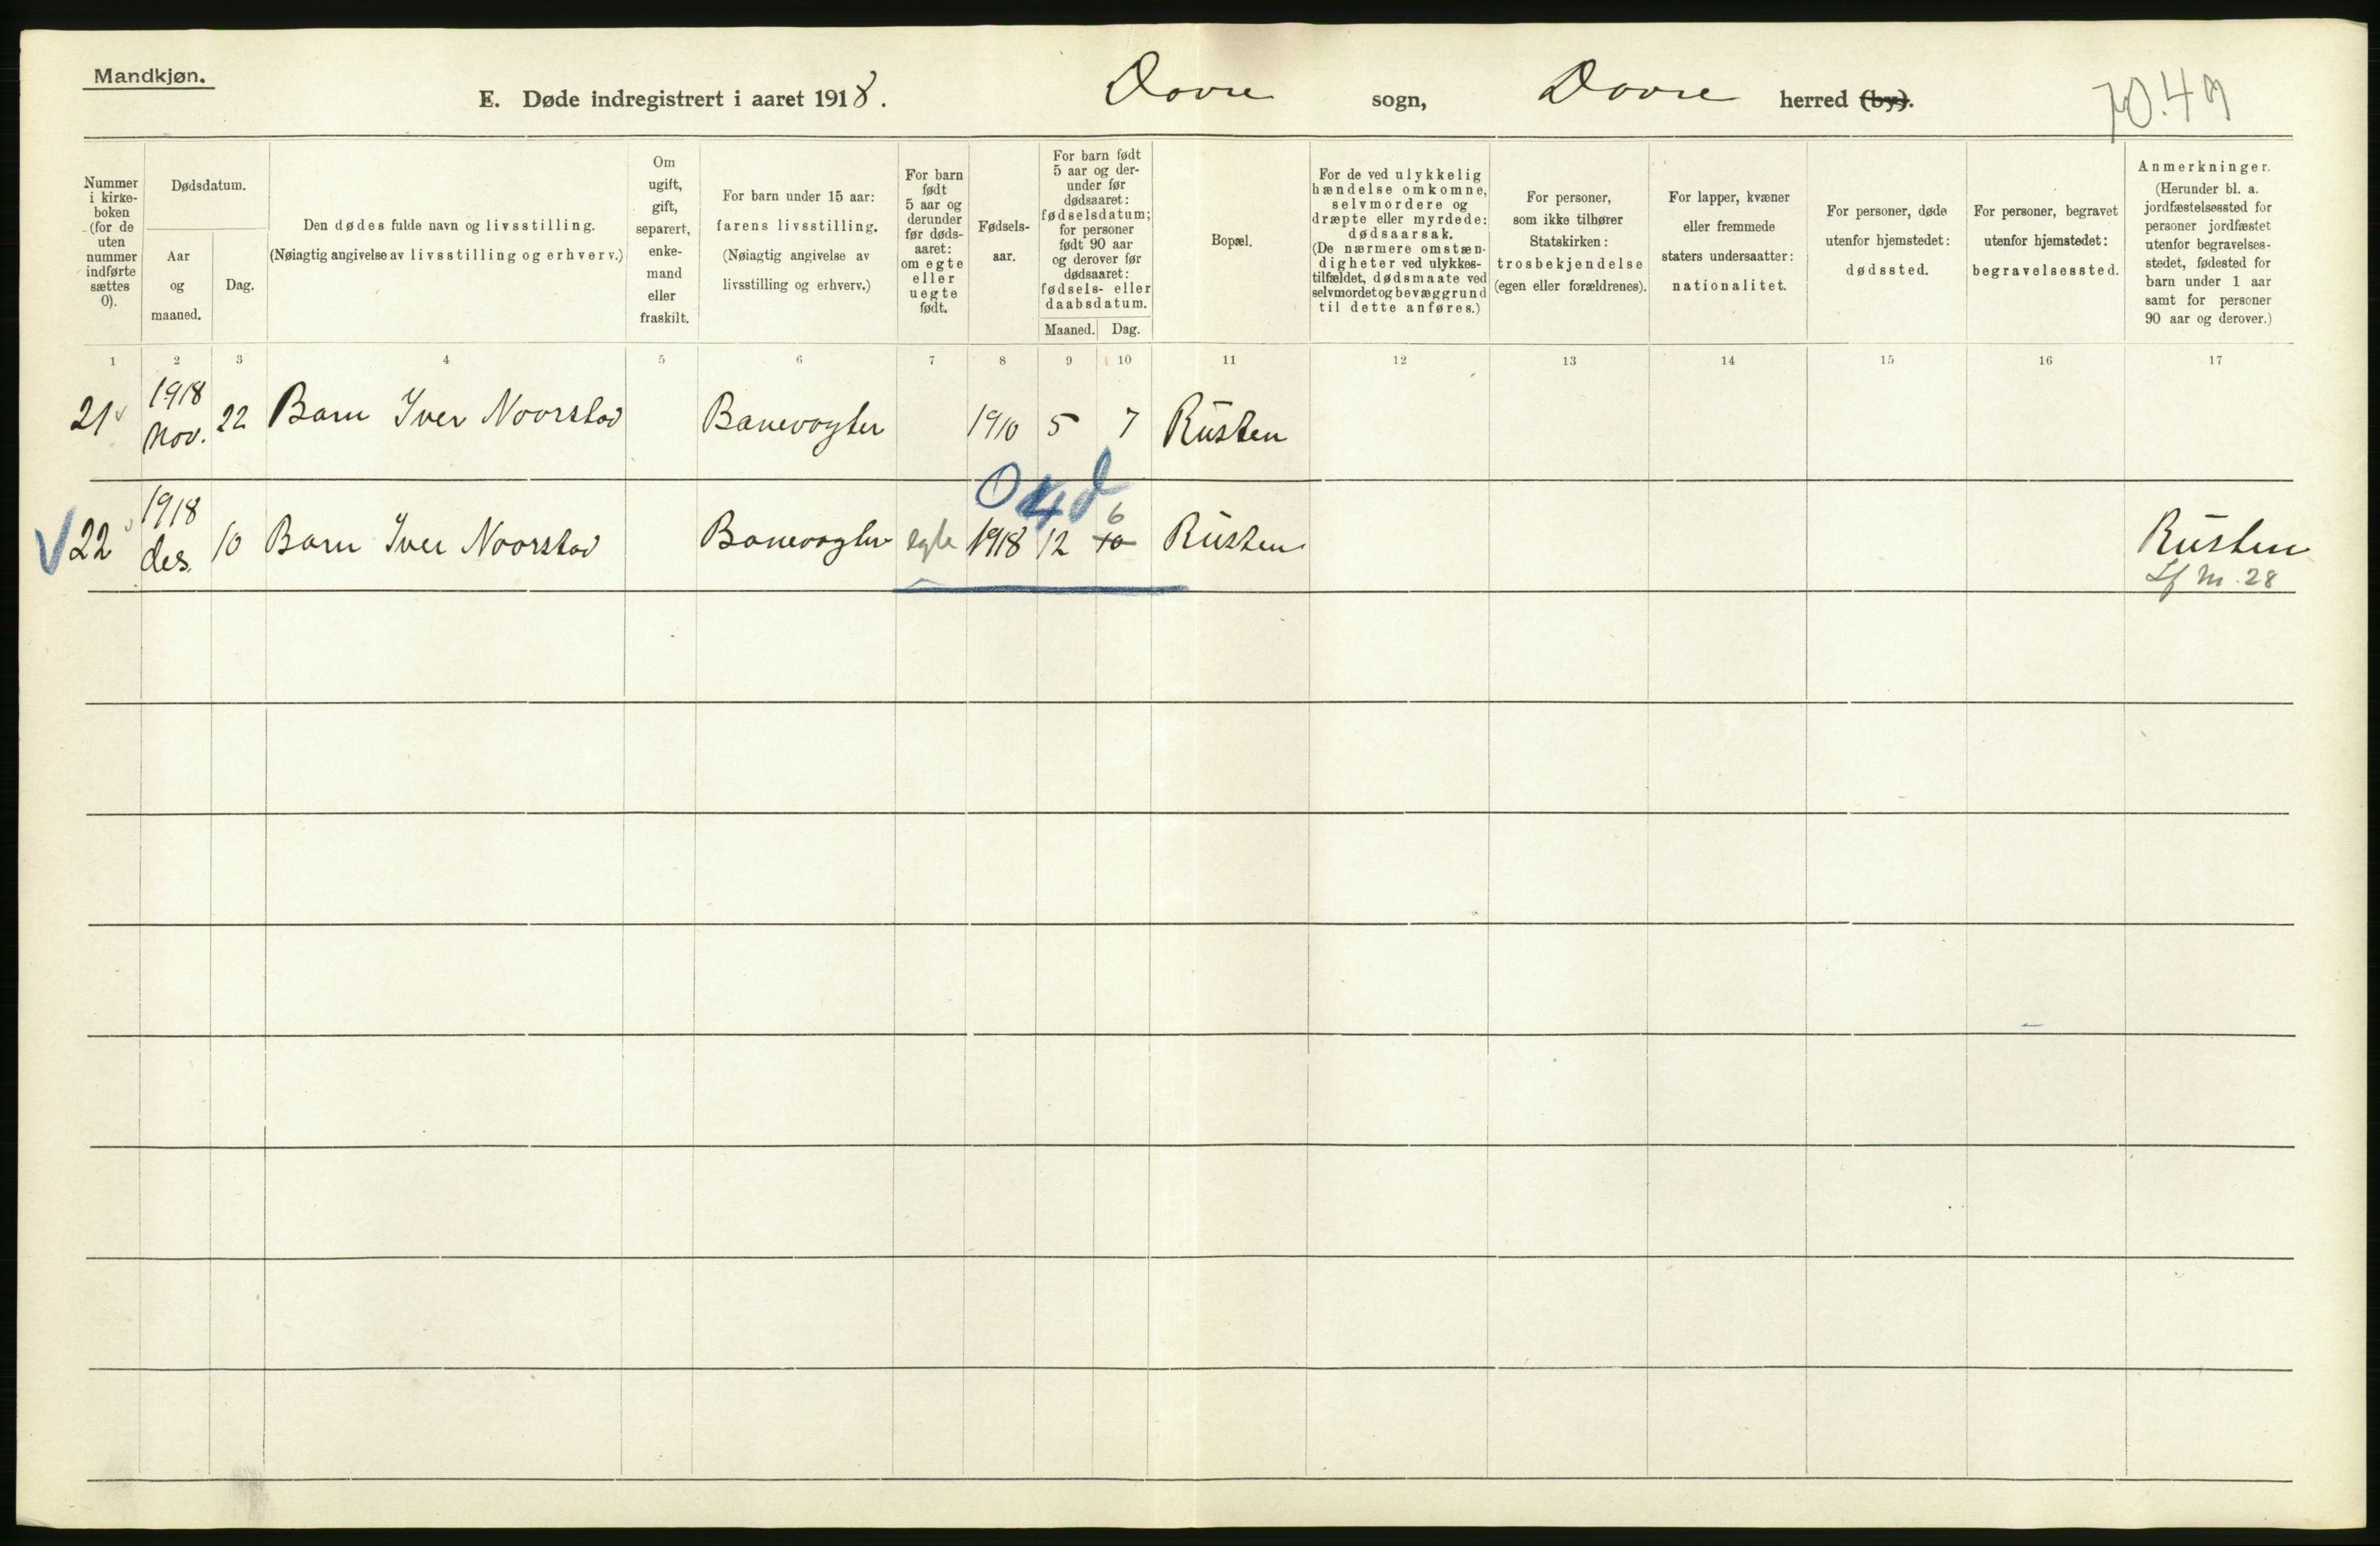 Mandkjøn.
E. Døde indregistrert i aaret 1918. Dovre sogn, Dovre herred (by).
Nummer i kirke-boken (for de uten nummer indførte sættes 0).
Dødsdatum.
Aar og maaned.
Dag.
Den dødes fulde navn og livsstilling.
(Nøiagtig angivelse av livsstilling og erhverv.)
Om ugift, gift, separert, enke-mand eller fraskilt.
For barn under 15 aar:
farens livsstilling.
(Nøiagtig angivelse av livsstilling og erhverv.)
For barn født 5 aar og derunder før døds-aaret: om egte eller uegte født.
Fødsels-aar.
For barn født 5 aar og der-under før dødsaaret: fødselsdatum; for personer født 90 aar og derover før dødsaaret: fødsels- eller daabsdatum.
Maaned. Dag.
Bopæl.
For de ved ulykkelig hændelse omkomne, selvmordere og dræpte eller myrdede: dødsaarsak.
(De nærmere omstæn-digheter ved ulykkes-tilfældet, dødsmaate ved selvmordet og bevæggrund til dette anføres.)
For personer, som ikke tilhører Statskirken: trosbekjendelse (egen eller forældrenes).
For lapper, kvæner eller fremmede staters undersaatter: nationalitet.
For personer, døde utenfor hjemstedet: dødssted.
For personer, begravet utenfor hjemstedet: begravelsessted.
Anmerkninger.
(Herunder bl. a. jordfæstelsessted for personer jordfæstet utenfor begravelses-stedet, fødested for barn under 1 aar samt for personer 90 aar og derover.)
1 2 3 4 5 6 7 8 9 10 11 12 13 14 15 16 17
21 1918 Nov. 22 Barn Iver Noorstad Banevogter 1910 5 7 Rusten
0 4 d
22 1918 des. 10 Barn Iver Noorstad Banevogter egte 1918 12 10 6 Rusten Rusten
Lf m. 28